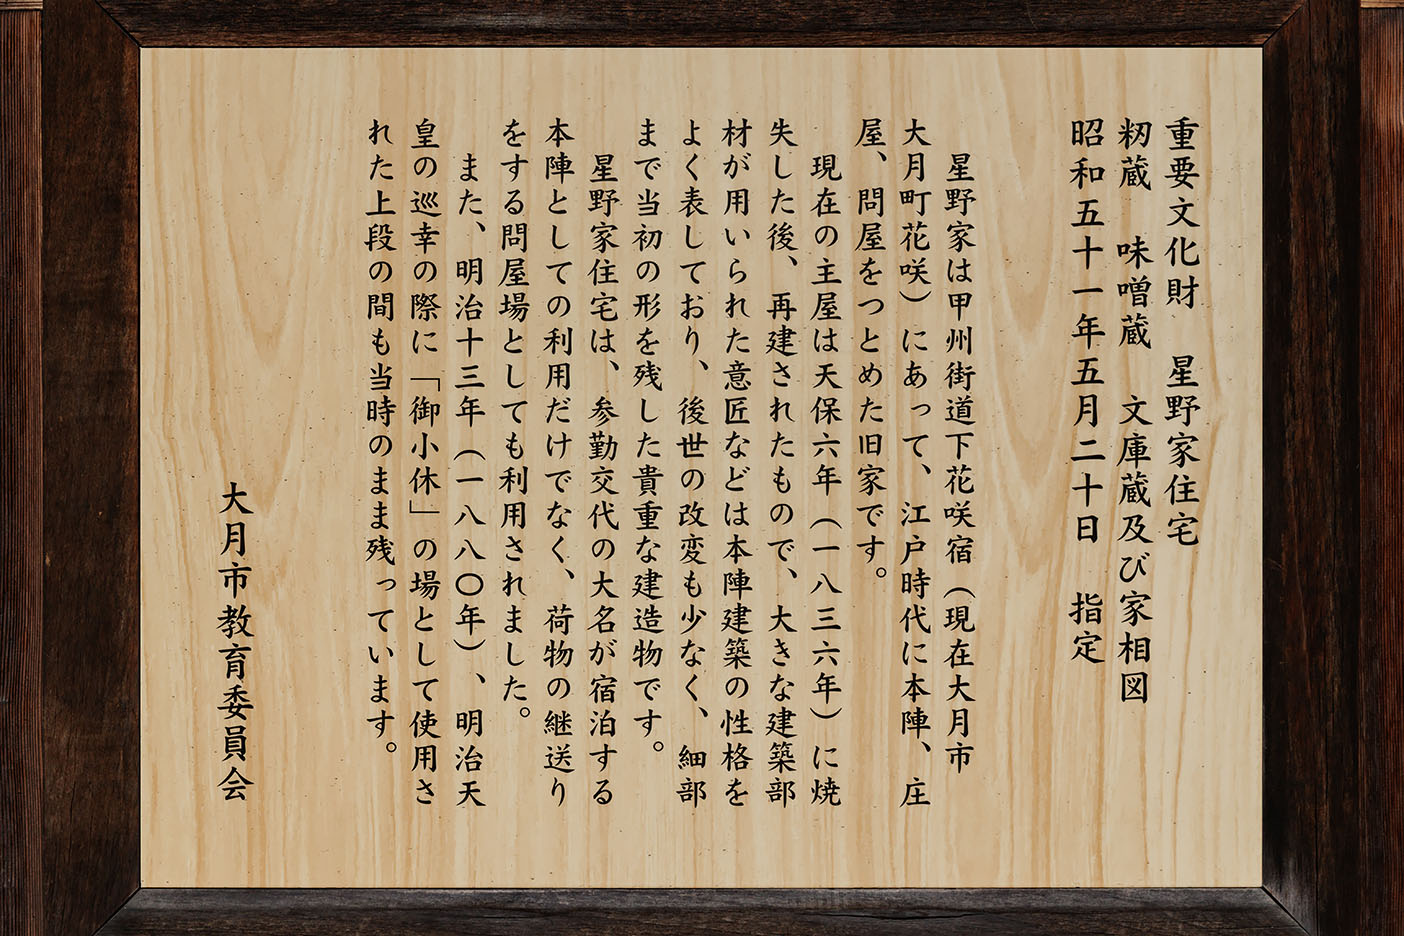 重要文化財　星野家住宅
籾蔵　味噌蔵　文庫蔵及び家相図
昭和五十一年五月二十日　指定
星野家は甲州街道下花咲宿（現在大月市
大月町花咲）にあって、江戸時代に本陣、庄
屋、問屋をつとめた旧家です。
現在の主屋は天保六年（一八三六年）に焼
失した後、再建されたもので、大きな建築部
材が用いられた意匠などは本陣建築の性格を
よく表しており、後世の改変も少なく、細部
まで当初の形を残した貴重な建造物です。
星野家住宅は、参勤交代の大名が宿泊する
本陣としての利用だけでなく、荷物の継送り
をする問屋場としても利用されました。
また、明治十三年（一八八〇年）、明治天
皇の巡幸の際に「御小休」の場として使用さ
れた上段の間も当時のまま残っています。
大月市教育委員会